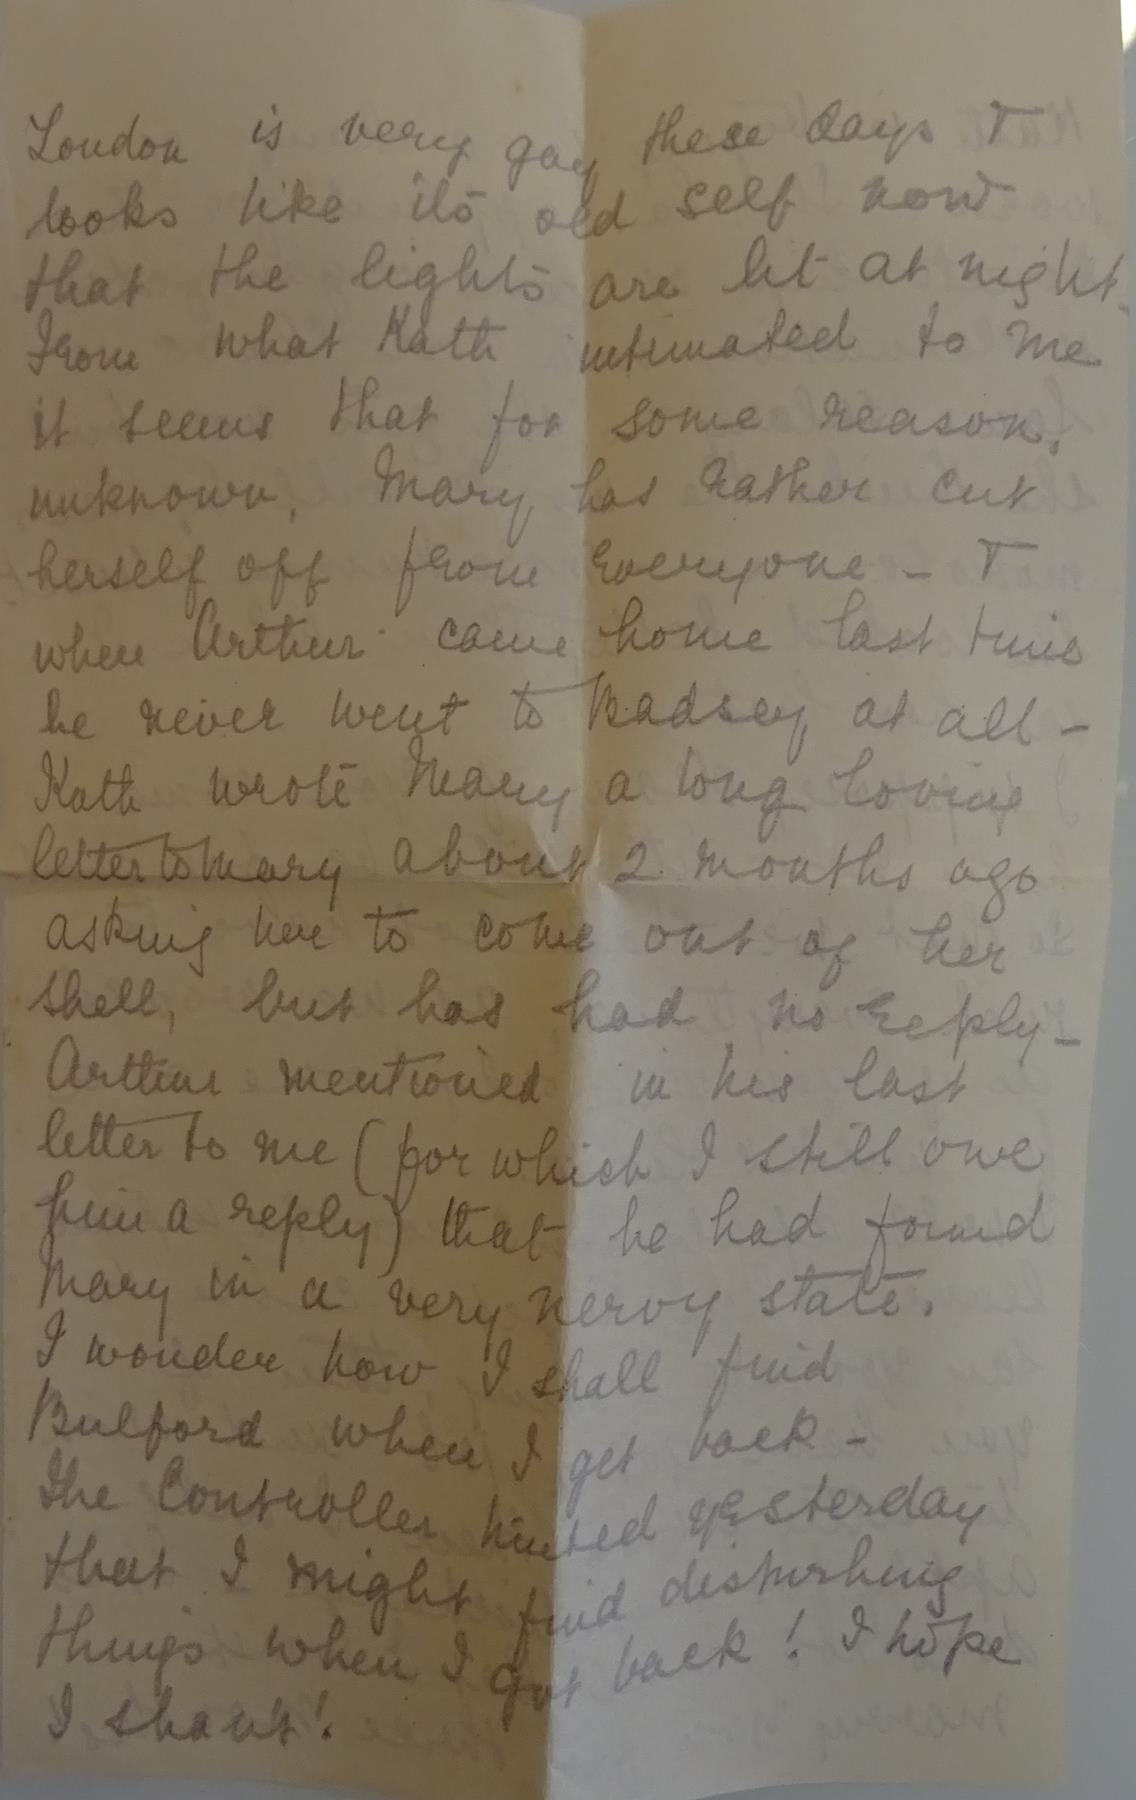 London is very gay these days &
looks like its old self now
that the lights are lit at night.
From what Kath intimated to me
it seems that for some reason,
unknown, Mary has rather cut
herself off from everyone - &
when Arthur came home last time
he never went to Badsey at all -
Kath wrote Mary a long loving
letter to Mary about 2 months ago
asking her to come out of her
shell, but has had no reply -
Arthur mentioned in his last
letter to me (for which I still owe
him a reply) that he had found
Mary in a very nervy state.
I wonder how I shall find
Bulford when I get back -
The Controller hinted yesterday
that I might find disturbing
things when I got back! I hope
I shan't!